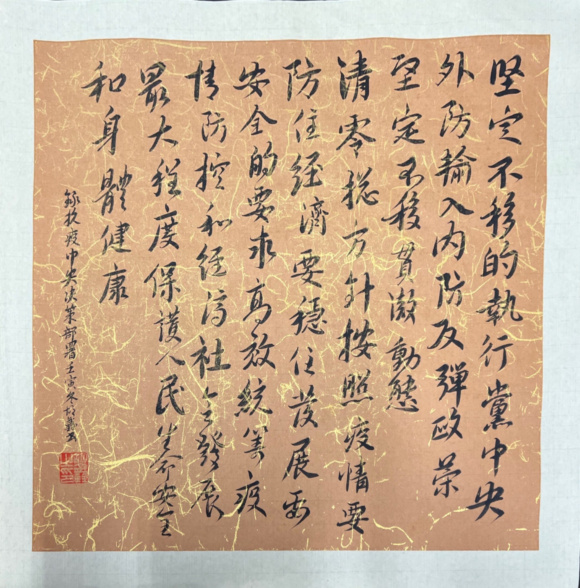 坚定不移的執行黨中央
外防輸入内防反彈政策
堅定不移貫徹動態
清零総方針按照疫情要
防住經濟要穩住發展要
安全的要求高效統筹疫
情防控和经濟社会發展
最大程度保護人民生命安全
和身體健康
錄抗疫中央决策部署壬寅冬